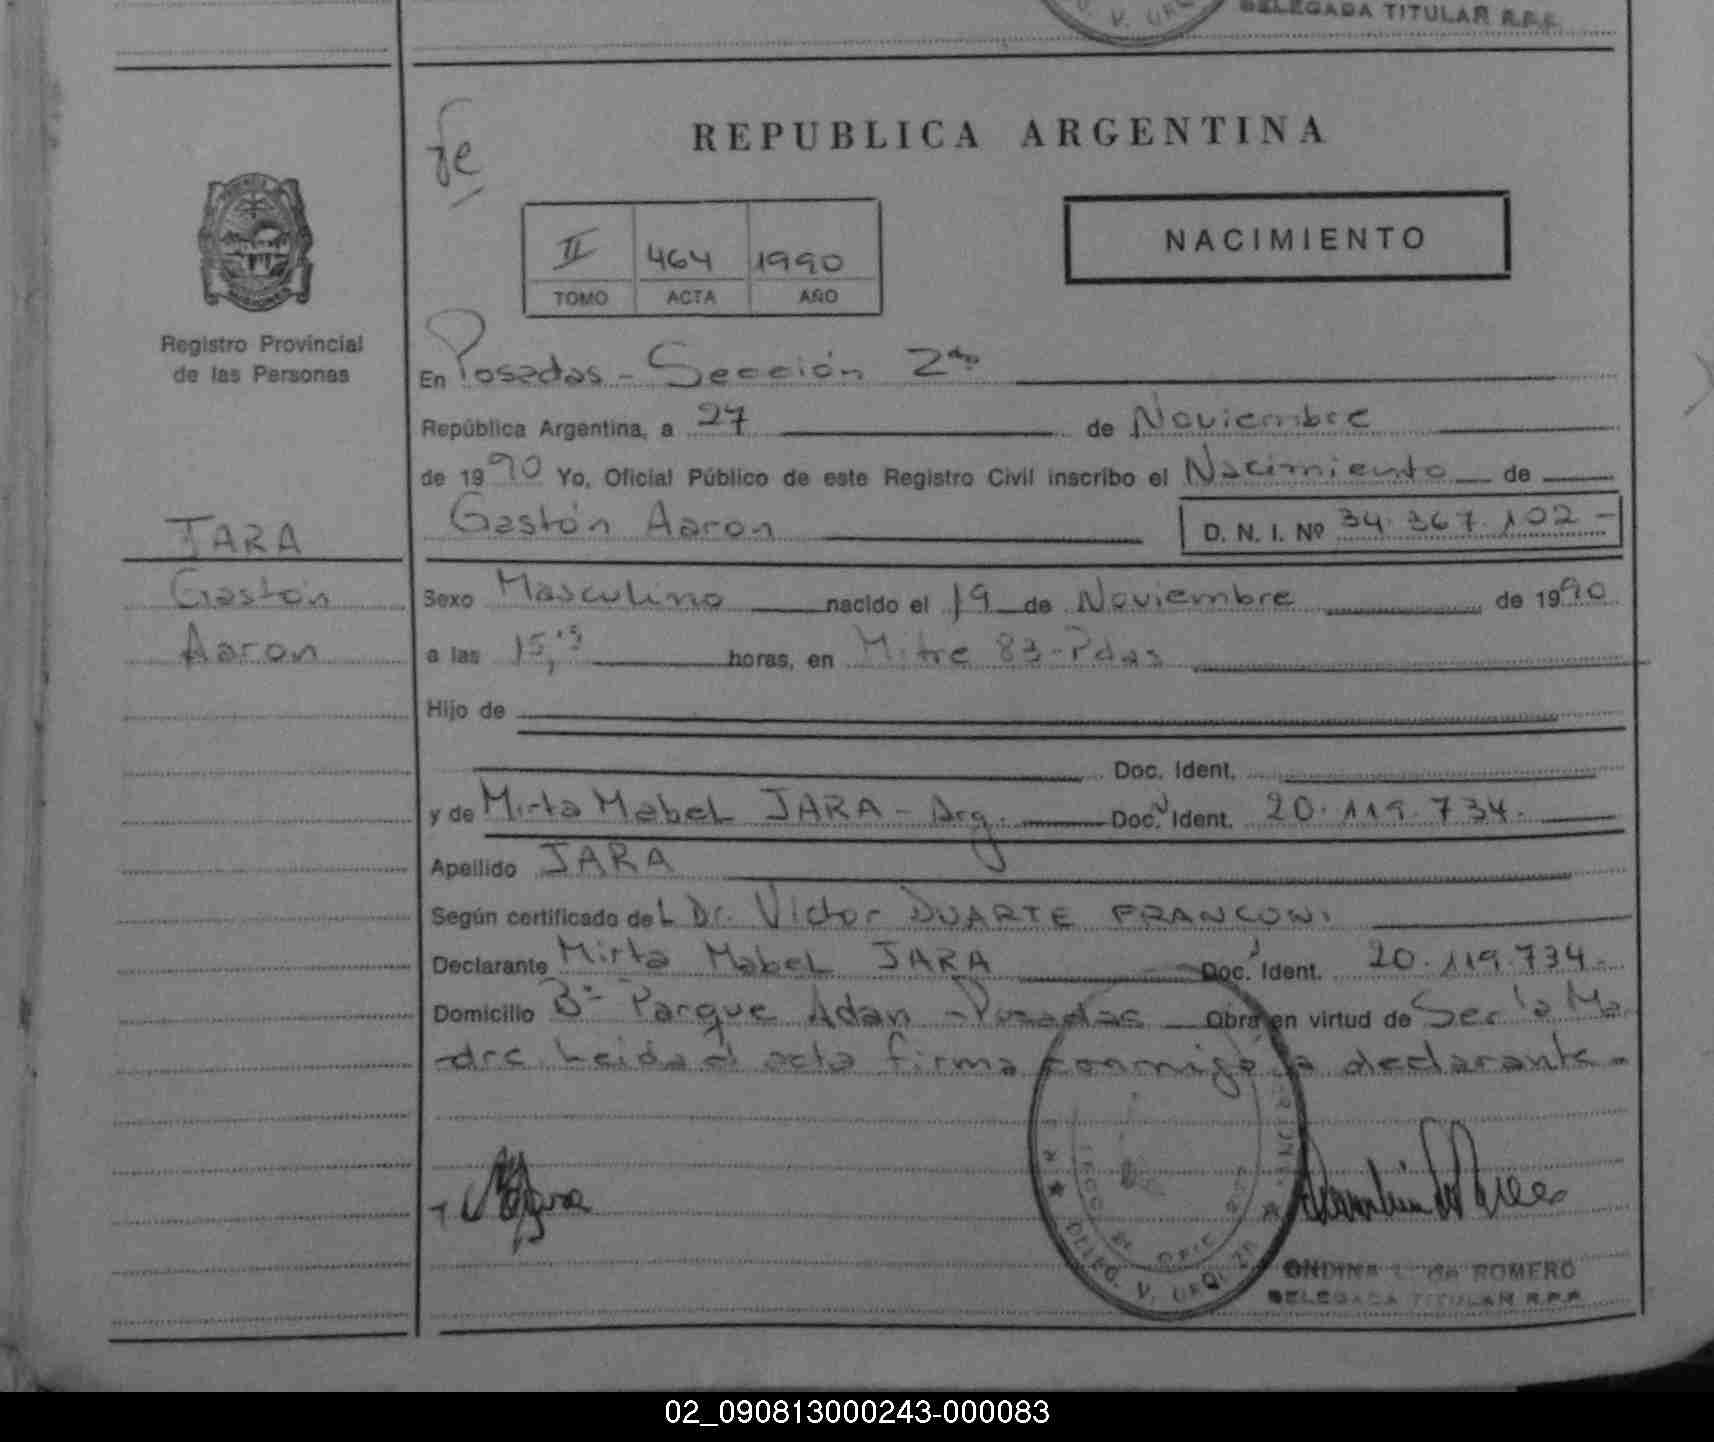 DELEGADA TITULAR R.P.P.
REPUBLICA ARGENTINA
NACIMIENTO
II 464 1990
TOMO ACTA AÑO
Registro Provincial
de las Personas
En Posadas - Sección 2da
República Argentina, a 27 de Noviembre
de 1990 Yo, Oficial Público de este Registro Civil inscribo el Nacimiento de
Gastón Aaron D. N. I. Nº 34.367.102-
JARA
Gastón
Aaron
Sexo Masculino nacido el 19 de Noviembre de 1990
a las 15,15 horas, en Mitre 83-Pdas
Hijo de
Doc. Ident.
y de Mirta Mabel JARA - Arg. Doc. Ident. 20.119.734.
Apellido JARA
Según certificado del Dr. Victor DUARTE FRANCONI
Declarante Mirta Mabel JARA Doc. Ident. 20.119.734-
Domicilio Bº Parque Adan - Posadas Obra en virtud de Ser la Ma
dre Leida el acta firma conmigo la declarante-
ONDINA L. de ROMERO
DELEGADA TITULAR R.P.P.
02_090813000243-000083